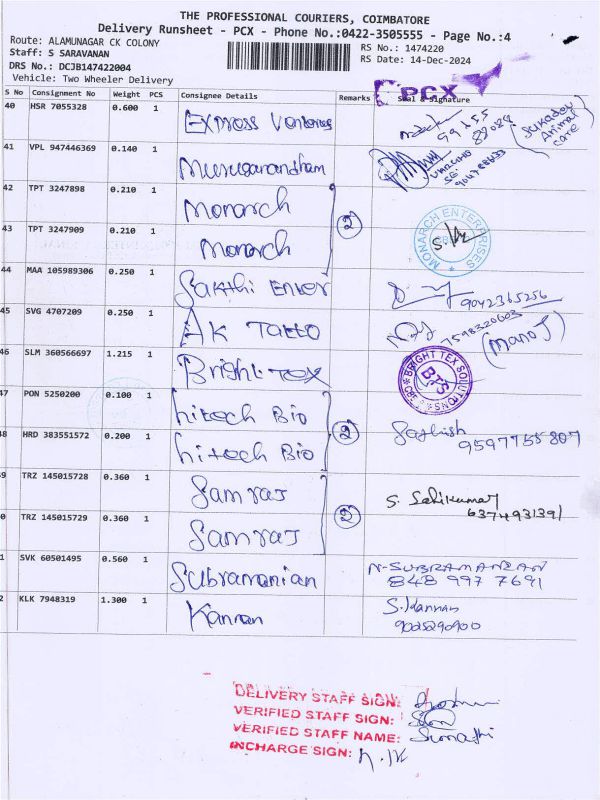 THE PROFESSIONAL COURIERS, COIMBATORE
Delivery Runsheet - PCX - Phone No.:0422-3505555 - Page No.:4
Route: ALAMUNAGAR CK COLONY
Staff: S SARAVANAN
DRS No.: DCJB147422004
Vehicle: Two Wheeler Delivery
RS No.: 1474220
RS Date: 14-Dec-2024
PCX
S No Consignment No Weight PCS Consignee Details Remarks Seal & Signature
40 HSR 7055328 0.600 1 Express Ventures
Sukadev Animal care
41 VPL 947446369 0.140 1 Muruganandham
42 TPT 3247898 0.210 1 Monarch
2
43 TPT 3247909 0.210 1 Monarch
MONARCH ENTERPRISES
44 MAA 105989306 0.250 1 Sakthi Enter 9042365256
45 SVG 4707209 0.250 1 AK Tatto 7598320603 (Manoj)
46 SLM 360566697 1.215 1 Bright Tex
BRIGHT TEX SOLUTIONS
BTS
CBE
47 PON 5250200 0.100 1 hitech Bio
2
48 HRD 383551572 0.200 1 hitech Bio Sathish 9597755807
9 TRZ 145015728 0.360 1 Samraj
2
S. Sasikumar
6374931391
0 TRZ 145015729 0.360 1 Samraj
1 SVK 60501495 0.560 1 Subramanian N-SUBRAMANIAN
848 997 7691
2 KLK 7948319 1.300 1 Kannan S. Kannan
9025290900
DELIVERY STAFF SIGN:
VERIFIED STAFF SIGN:
VERIFIED STAFF NAME: Sumathi
INCHARGE SIGN: